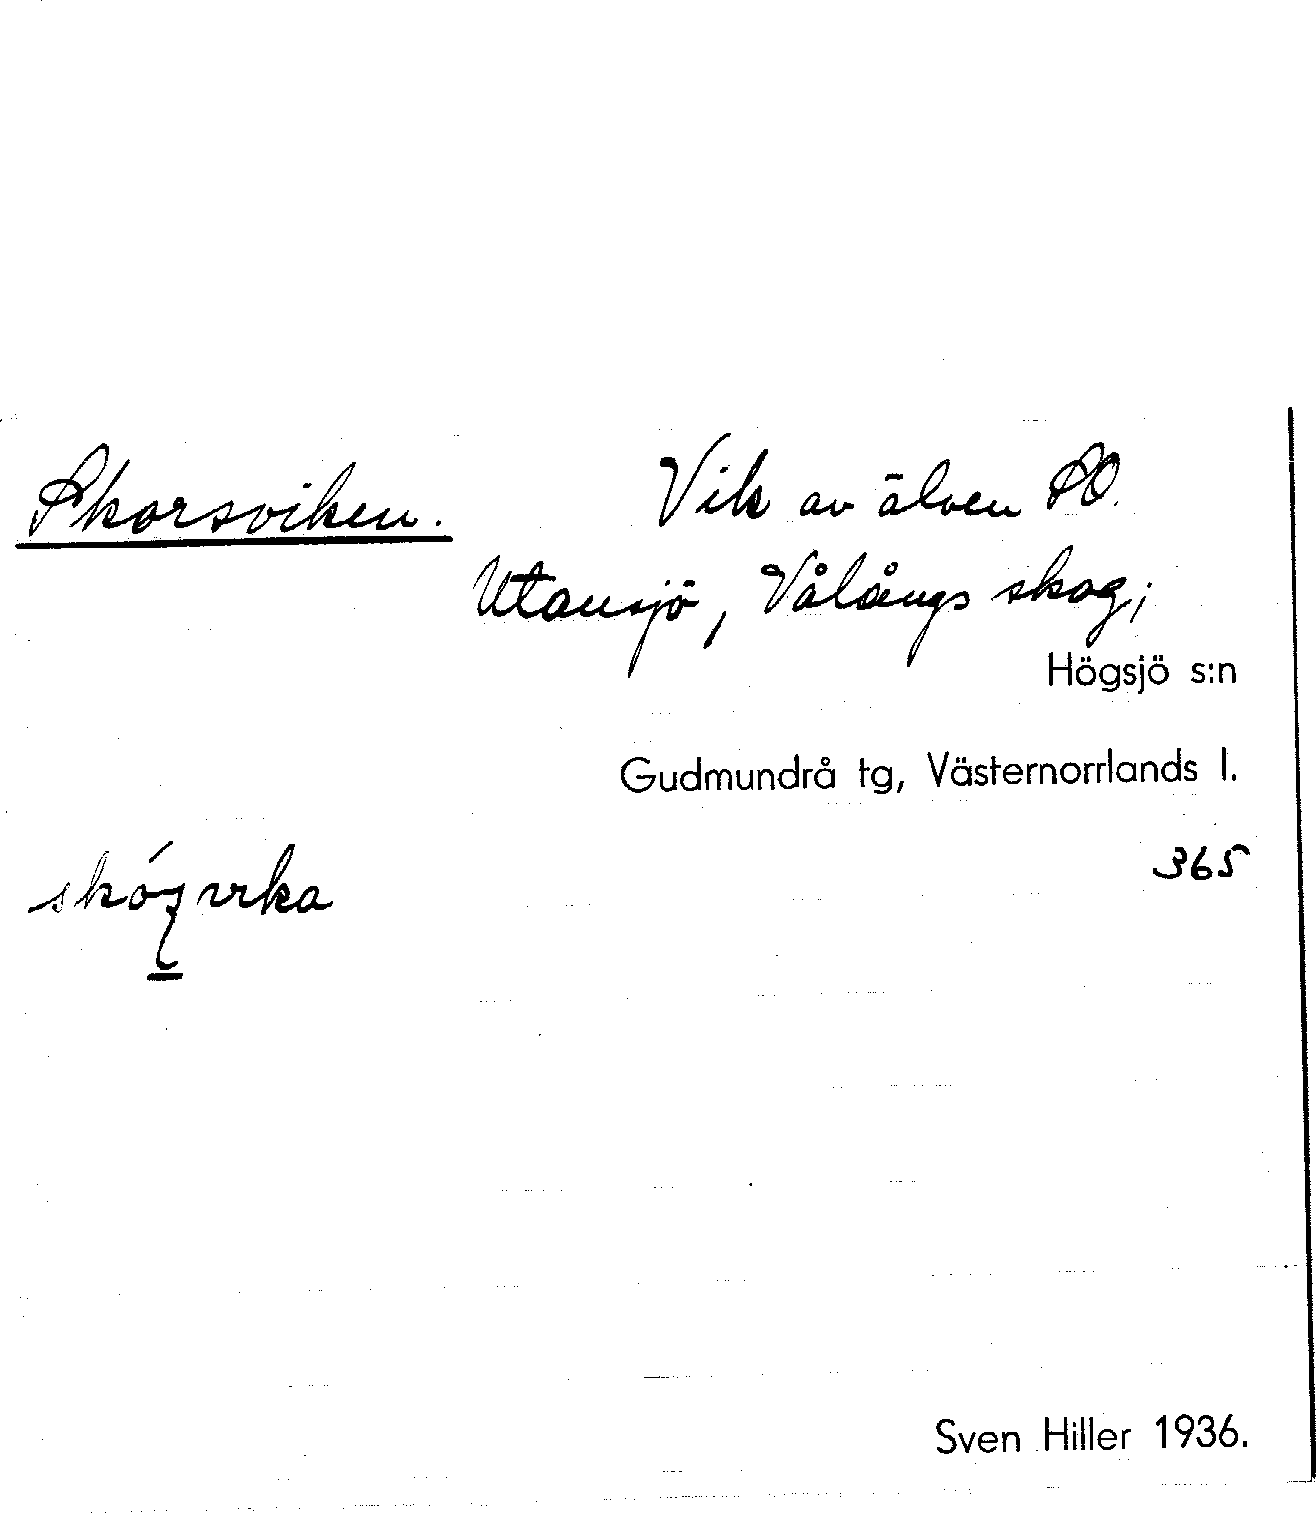 Skorsviken. Vik av älven SO.
Utansjö, Vålångs skog;
Högsjö s:n
Gudmundrå tg, Västernorrlands l.
365
Sven Hiller 1936.